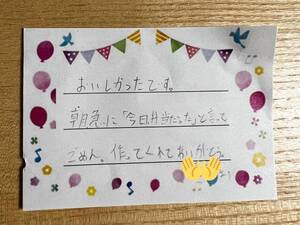 おいしかったです。
朝急に「今日弁当だった」と言って
ごめん。作ってくれてありがとう
より